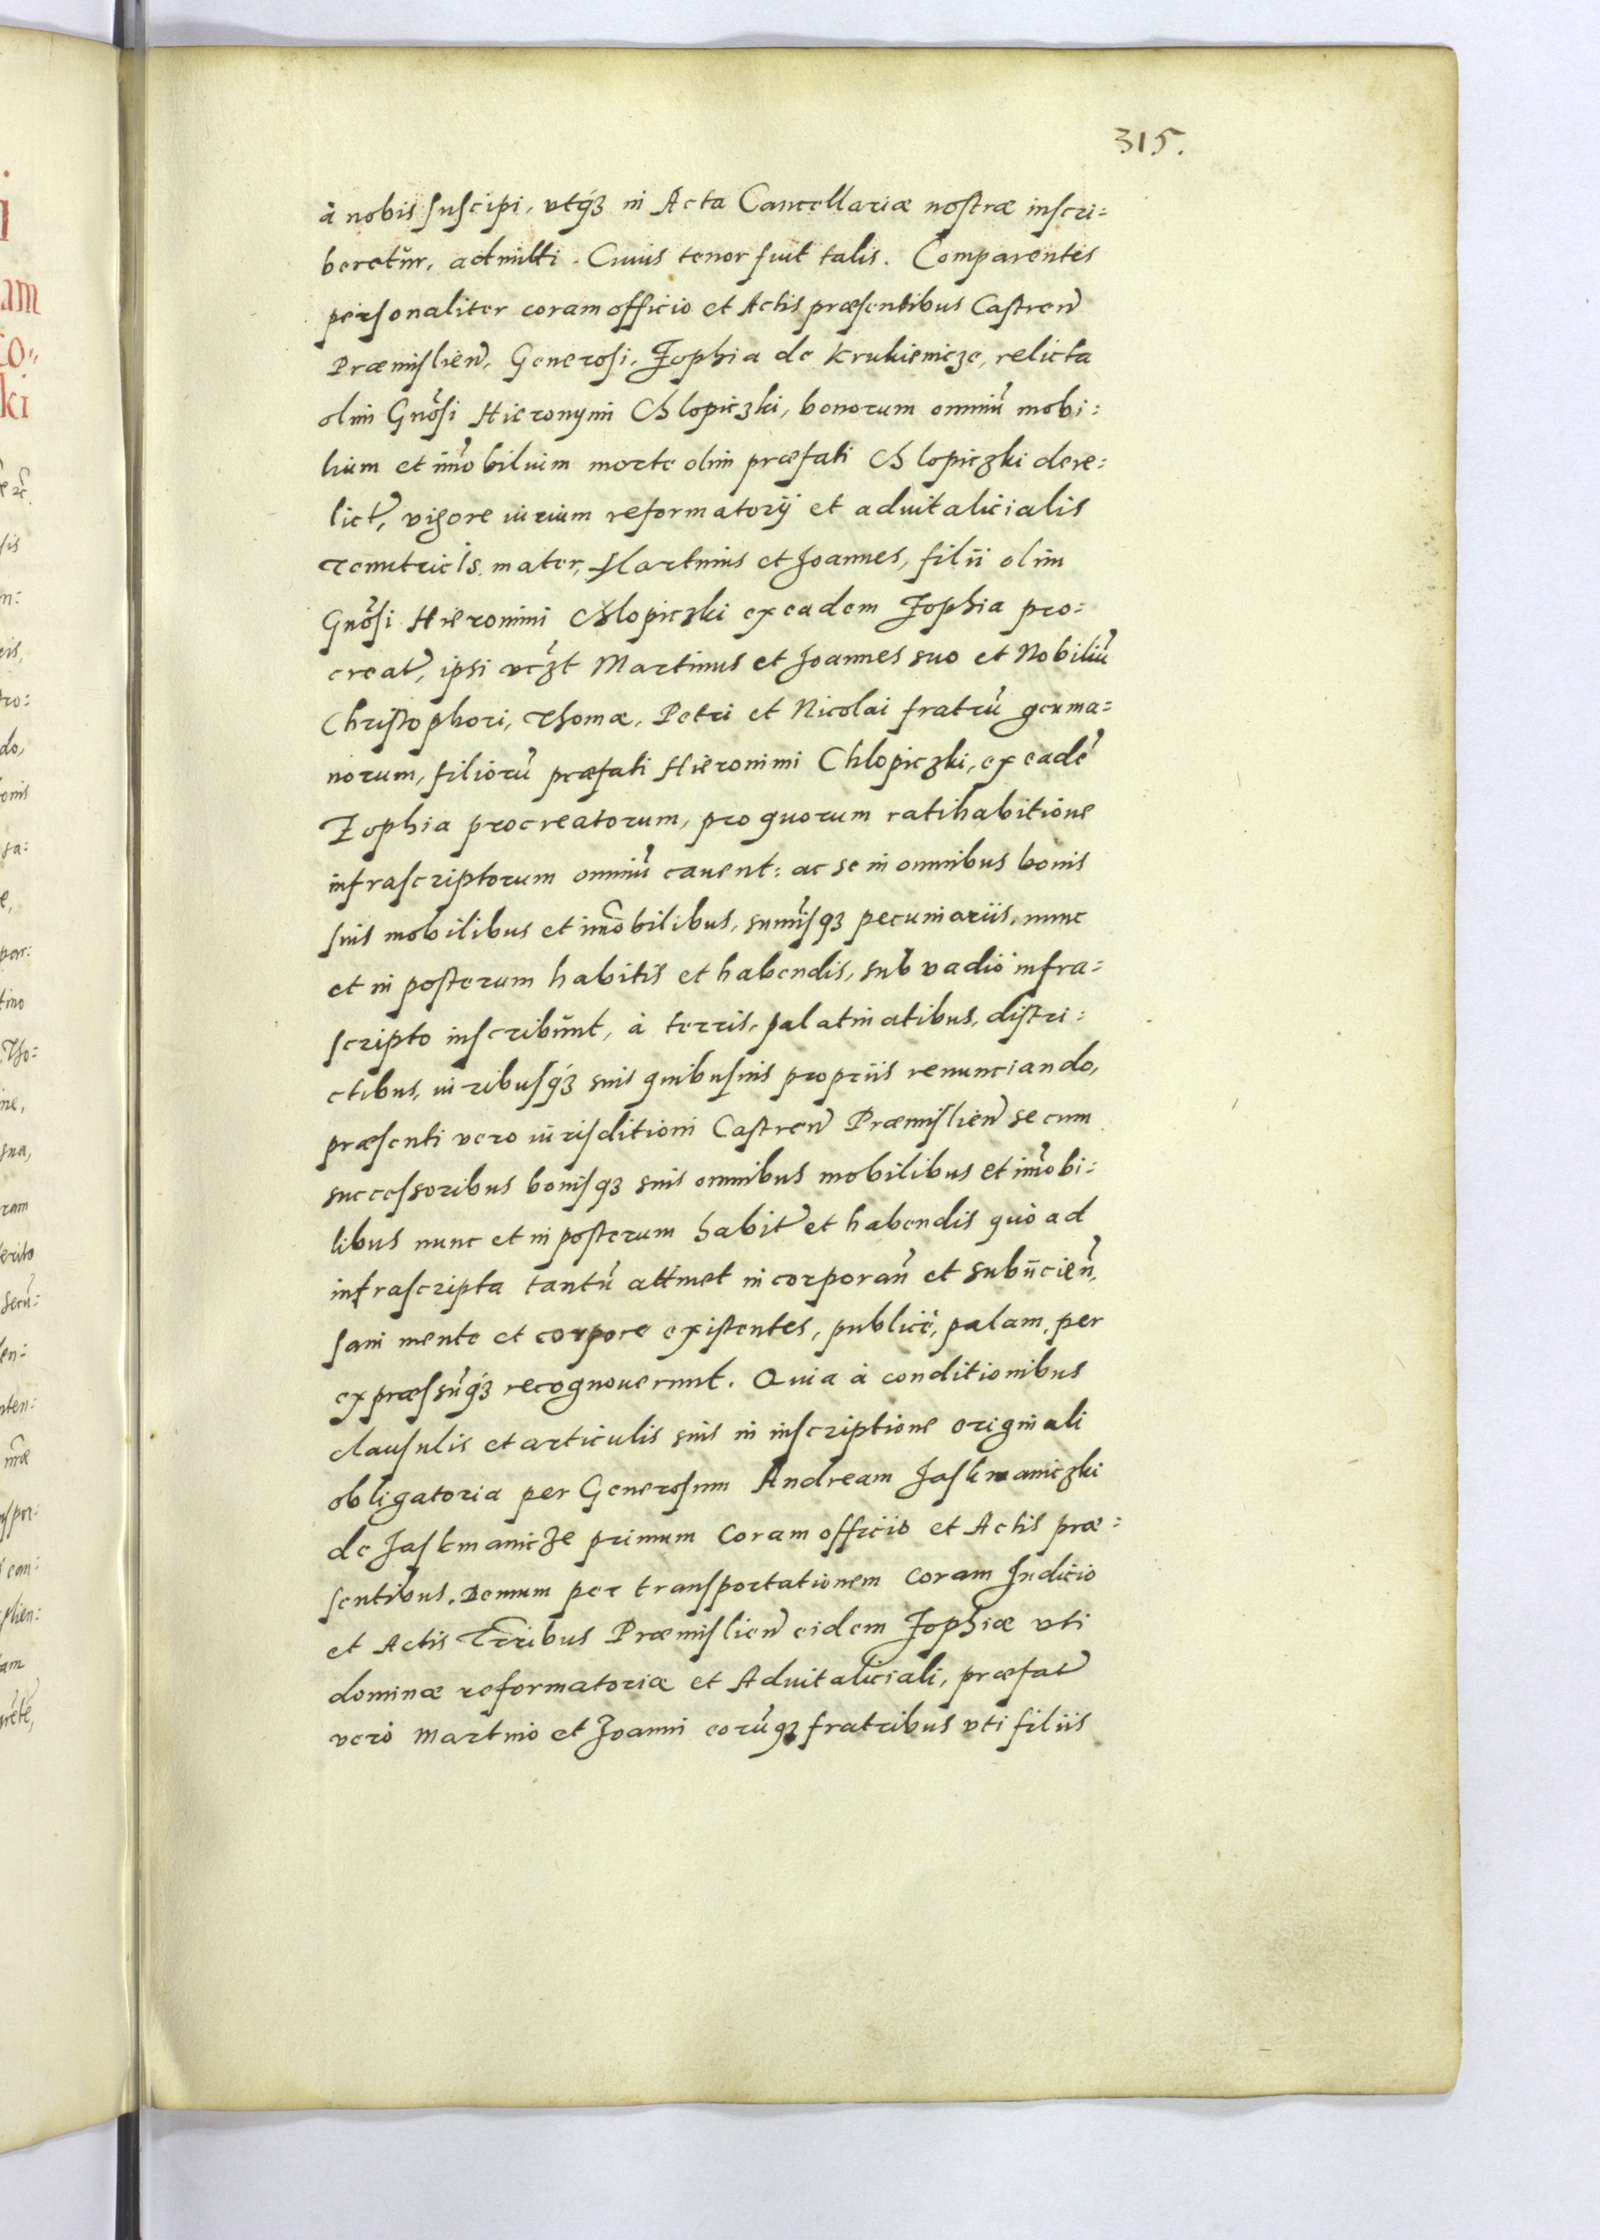 315.
à nobis suscipi, vtq́ꝫ in Acta Cancellariæ nostræ inscri=
beretur, admitti. Cuius tenor fuit talis. Comparentes
personaliter coram officio et Actis præsentibus Castren̄
Præmislien̄, Generosi, Zophia de Krukienicze, relicta
olim Gnősi Hieronymi Chlopiczki, bonorum omniū mobi=
lium et im̄obilium morte olim præfati Chlopiczki dere=
lict̄, vigore iurium reformatorÿ et aduitalicialis
tenutricis, mater, Martinus et Joannes, filii olim
Gnősi Hieronimi Chlopiczki ex eadem Zophia pro=
creat̄, ipsi vcꝫt Martinus et Joannes suo et Nobiliū
Christophori, Thomæ, Petri et Nicolai fratrū germa=
norum, filiorū præfati Hieronimi Chlopiczki, ex eadē
Zophia procreatorum, pro quorum ratihabitione
infrascriptorum omniū cauent: ac se in omnibus bonis
suis mobilibus et im̄obilibus, sum̄isqꝫ pecuniariis, nunc
et in posterum habitis et habendis, sub vadio infra=
scripto inscribunt, à terris, palatinatibus, distri=
ctibus, iuribusq́ꝫ suis quibusuis propriis renunciando,
præsenti vero iurisditioni Castren̄ Præmislien̄ se cum
successoribus bonisqꝫ suis omnibus mobilibus et im̄obi=
libus nunc et in posterum habit̄ et habendis quò ad
infrascripta tantū attinet incorporan̄ et subiicien̄,
sani mente et corpore existentes, publicè, palam, per
expræssūq́ꝫ recognouerunt. Quia à conditionibus
clausulis et articulis suis in inscriptione originali
obligatoria per Generosum Andream Jaskmaniczki
de Jaskmanicze primum coram officio et Actis præ=
sentibus. Demum per transportationem coram Judicio
et Actis Trr̄ibus Præmislien̄ eidem Zophiæ vti
dominæ reformatoriæ et Aduitaliciali, præfat̄
verò Martino et Joanni eorūqꝫ fratribus vti filiis